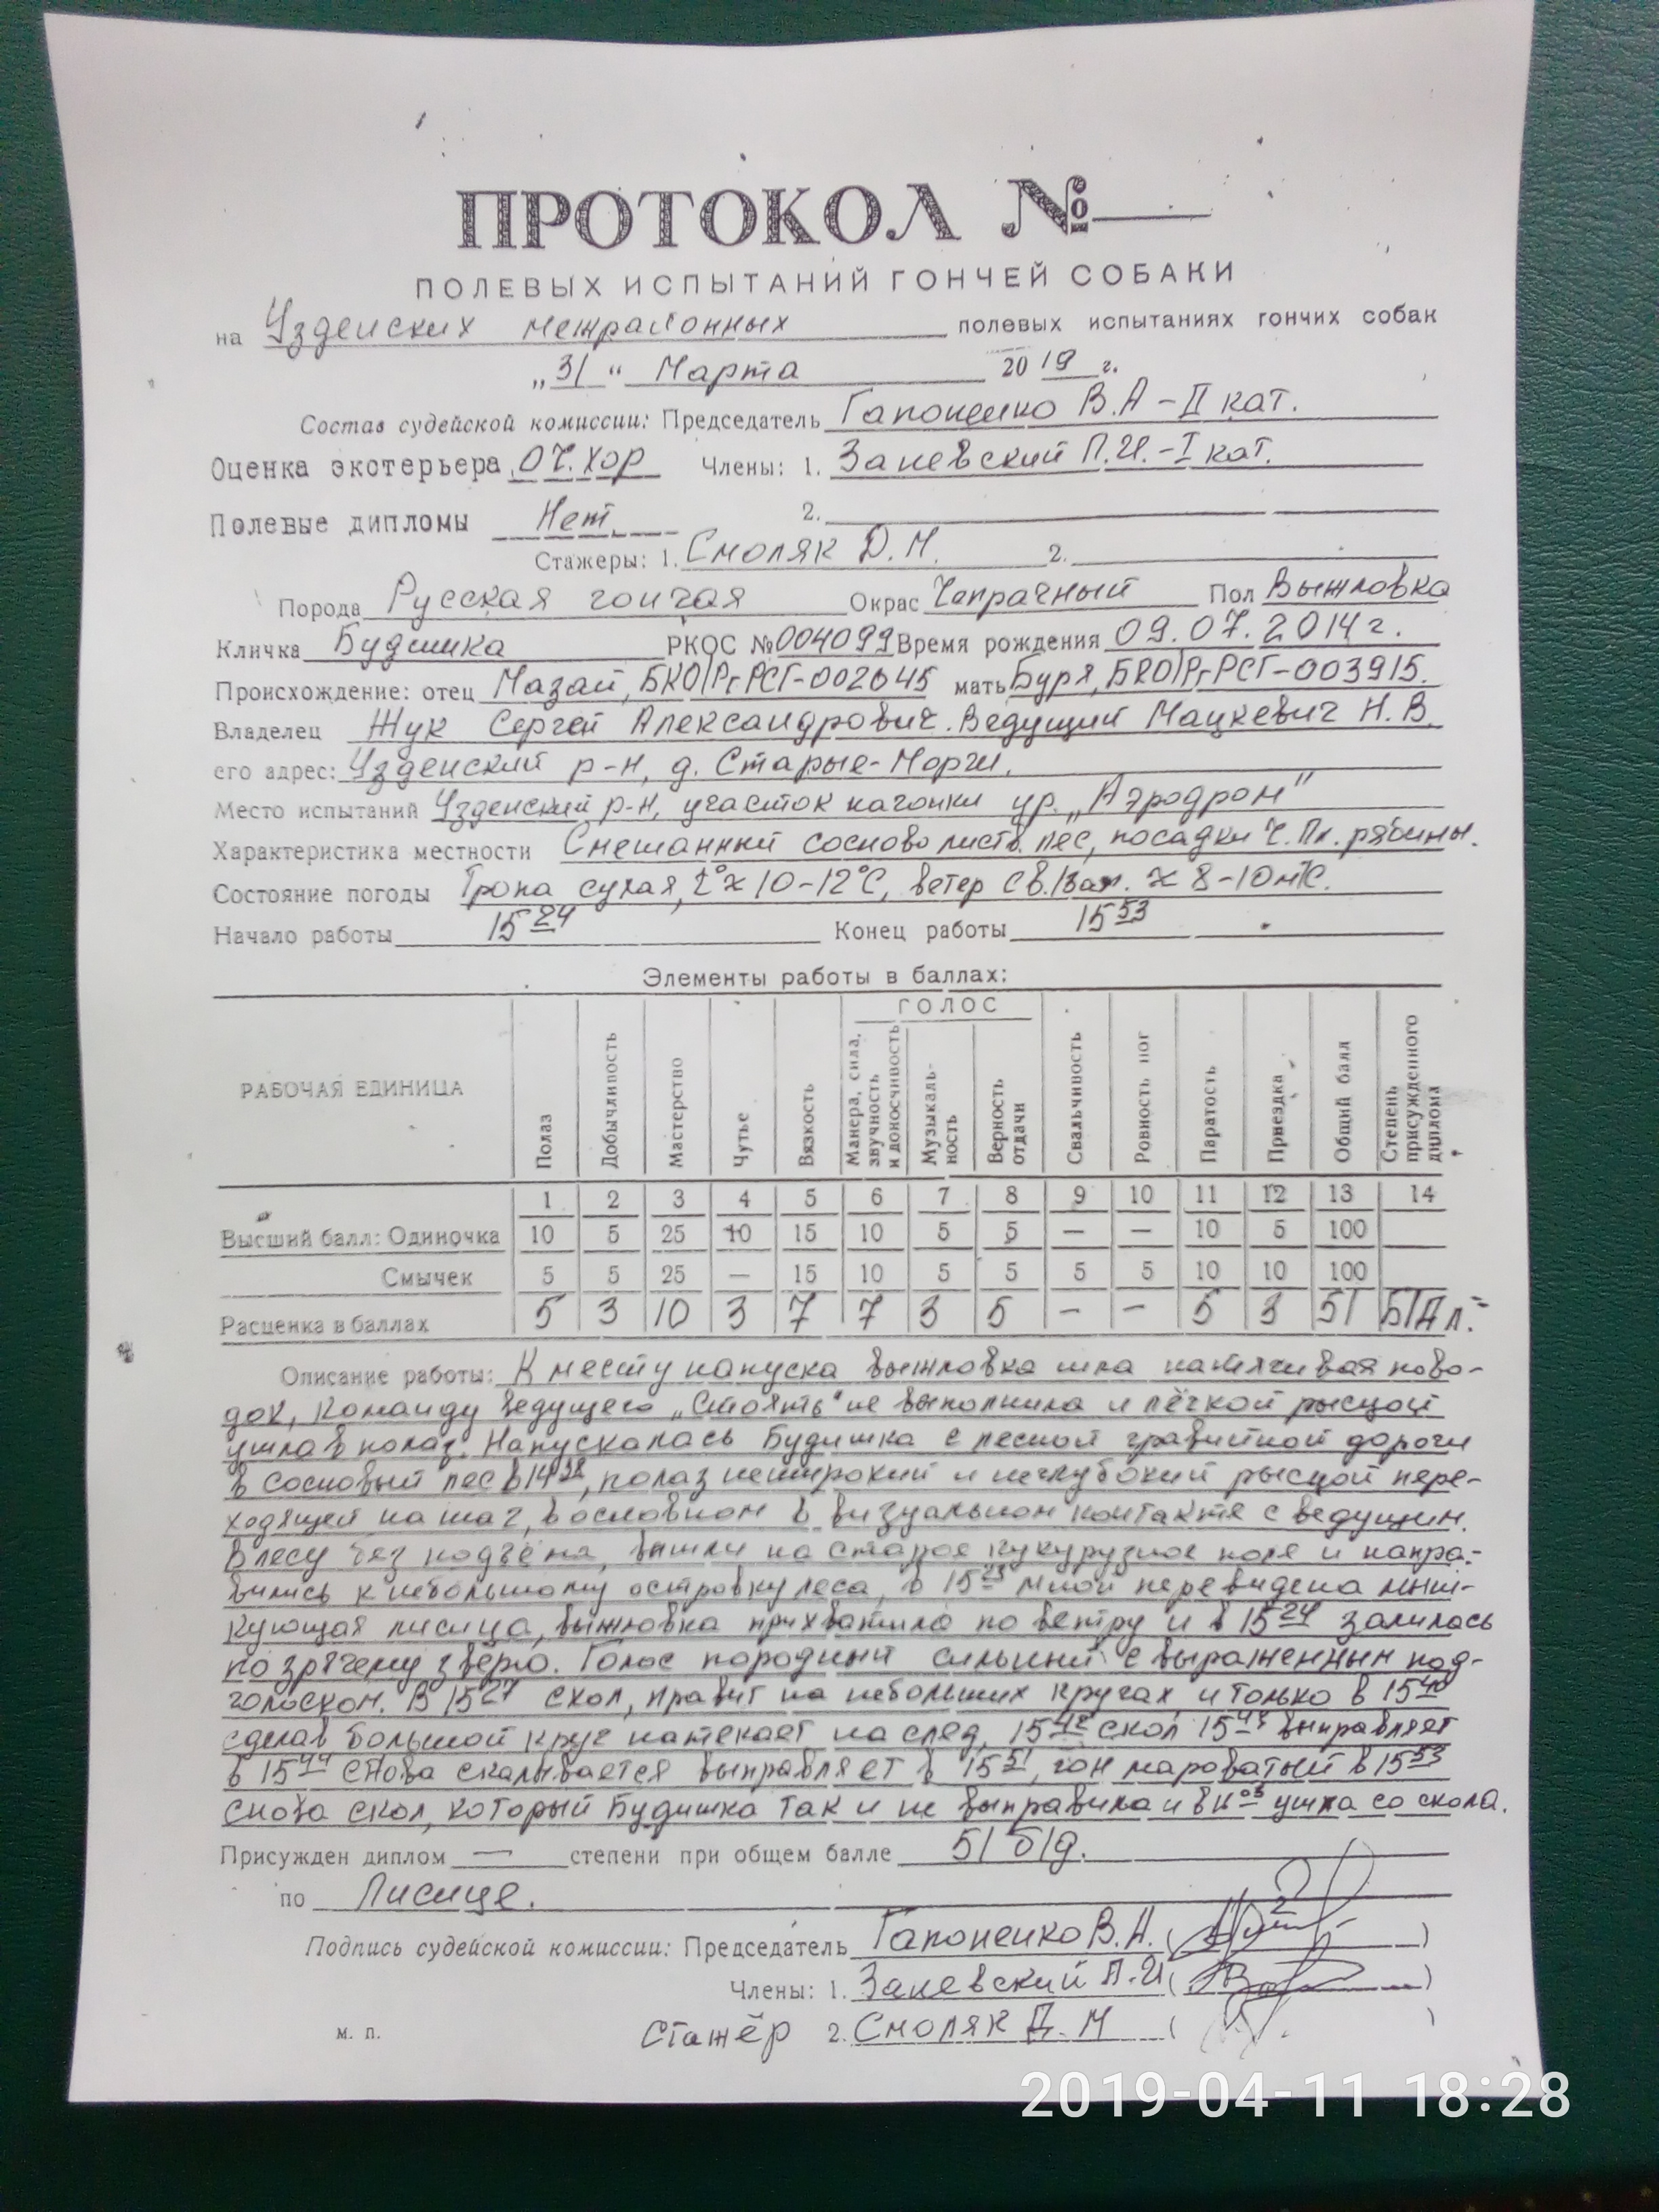 ПРОТОКОЛ №
ПОЛЕВЫХ ИСПЫТАНИЙ ГОНЧЕЙ СОБАКИ
на Узденских межрайонных полевых испытаниях гончих собак
„31“ Марта 2019 г.
Состав судейской комиссии: Председатель Гапоненко В.А – II кат.
Оценка экотерьера ОЧ. хор Члены: 1. Заневский П.И. – I кат.
Полевые дипломы Нет 2.
Стажеры: 1. Смоляк Д.М. 2.
Порода Русская гончая Окрас Чепрачный Пол Выжловка
Кличка Будишка РКОС № 004099 Время рождения 09.07.2014 г.
Происхождение: отец Мазай, БКО/РгРСГ-002645 мать Буря, БКО/РгРСГ-003915.
Владелец Жук Сергей Александрович. Ведущий Мацкевич Н.В.
его адрес: Узденский р-н, д. Старые-Морги.
Место испытаний Узденский р-н, участок нагонки ур. „Аэродром"
Характеристика местности Смешанный сосново листв. лес, посадки Ч. Пл. рябины.
Состояние погоды Тропа сухая, t°≈10-12°C, ветер Св./Зап. ≈ 8-10 м/с.
Начало работы 15 24 Конец работы 15 53
Элементы работы в баллах:
РАБОЧАЯ ЕДИНИЦА Полаз Добычливость Мастерство Чутье Вязкость ГОЛОС Манера, сила, звучность и доносчивость Музыкаль-ность Верность отдачи Свальчивость Ровность ног Паратость Приездка Общий балл Степень присужденного диплома
1 2 3 4 5 6 7 8 9 10 11 12 13 14
Высший балл: Одиночка 10 5 25 10 15 10 5 5 — — 10 5 100
Смычек 5 5 25 — 15 10 5 5 5 5 10 10 100
Расценка в баллах 5 3 10 3 7 7 3 5 – – 5 3 51 Б/Дпл.
Описание работы: К месту напуска выжловка шла натягивая пово-
док, команду ведущего „Стоять" не выполнила и лёгкой рысцой
ушла в полаз. Напускалась Будишка с лесной гравийной дороги
в сосновый лес в 14 38, полаз неширокий и неглубокий рысцой пере-
ходящей на шаг, в основном в визуальном контакте с ведущим.
В лесу без подъёма, вышли на старое кукурузное поле и напра-
вились к небольшому островку леса, в 15 23 мной перевидена мыш-
кующая лисица, выжловка прихватила по ветру и в 15 24 залилась
по зрячему зверю. Голос породный сильный с выраженным под-
голоском. В 15 27 скол, правит на небольших кругах и только в 15 40
сделав большой круг натекает на след, 15 42 скол 15 43 выправляет
в 15 44 снова скалывается выправляет в 15 51, гон мароватый в 15 53
снова скол, который Будишка так и не выправила и в 16 05 ушла со скола.
Присужден диплом — степени при общем балле 51 б/д.
по Лисице.
Подпись судейской комиссии: Председатель Гапоненко В.А. ( )
Члены: 1. Заневский П.И ( )
м. п. Стажёр 2. Смоляк Д.М ( )
2019-04-11 18:28